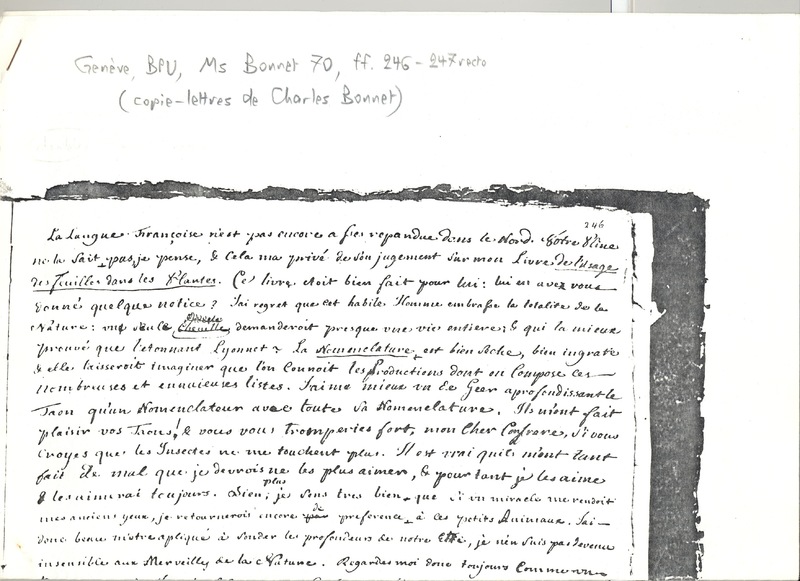 Genève, BPU, Ms Bonnet 70, ff. 246-247 recto
(copie-lettres de Charles Bonnet)
246
La Langue Françoise n'est pas encore assés repandue dans le Nord. Votre Linne
ne la sait pas, je pense, & cela m'a privé de son jugement sur mon Livre de l'Usage
des Feuilles dans les Plantes. Ce livre étoit bien fait pour lui: lui en avez vous
donné quelque notice? J'ai regret que cet habile Homme embrasse la totalité de la
Nature: une seule Chenille demanderoit presque une vie entiere; & qui l'a mieux
prouvé que l'etonnant Lyonnet? La Nomenclature est bien seche, bien ingrate
& elle laisseroit imaginer que l'on connoit les Productions dont on compose ces
nombreuses et ennuieuses listes. J'aime mieux un De Geer aprofondissant le
Taon qu'un Nomenclateur avec toute sa Nomenclature. Ils m'ont fait
plaisir vos Taons! & vous vous tromperies fort, mon Cher Confrere, si vous
croyes que les Insectes ne me touchent plus. Il est vrai qu'ils m'ont tant
fait de mal que je devrois ne les plus aimer, & pourtant je les aime
& les aimerai toujours. Bien plus; je sens tres bien que si un miracle me rendoit
mes anciens yeux, je retournerois encore de preference à ces petits Animaux. J'ai
donc beau m'etre apliqué à sonder les profondeurs de notre Etre, je n'en suis pas devenu
insensible aux Merveilles de la Nature. Regardes moi donc toujours comme un